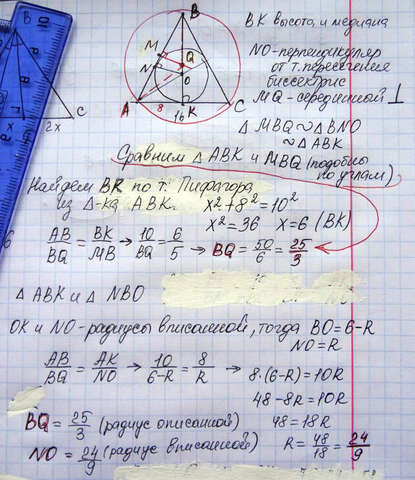 B
B
C
x
2x
B
M
Q
N
O
A
8
K
C
16
BK высота, и медиана
NO-перпендикуляр
от т. пересечения
биссектрис
MQ-серединной ⊥
Δ MBQ ∾ Δ BNO
∾ Δ ABK
Сравним Δ ABK и MBQ (подобны
по углам)
Найдем BK по т. Пифагора
из Δ-ка ABK.
x²+8²=10²
x²=36 x=6 (BK)
AB/BQ = BK/MB → 10/BQ = 6/5 → BQ = 50/6 = 25/3
Δ ABK и Δ NBO
OK и NO-радиусы вписанной, тогда BO=6-R
NO=R
AB/BQ = AK/NO → 10/6-R = 8/R → 8·(6-R)=10R
48-8R=10R
BQ = 25/3 (радиус описанной) 48=18R
NO = 24/9 (радиус вписанной) R = 48/18 = 24/9